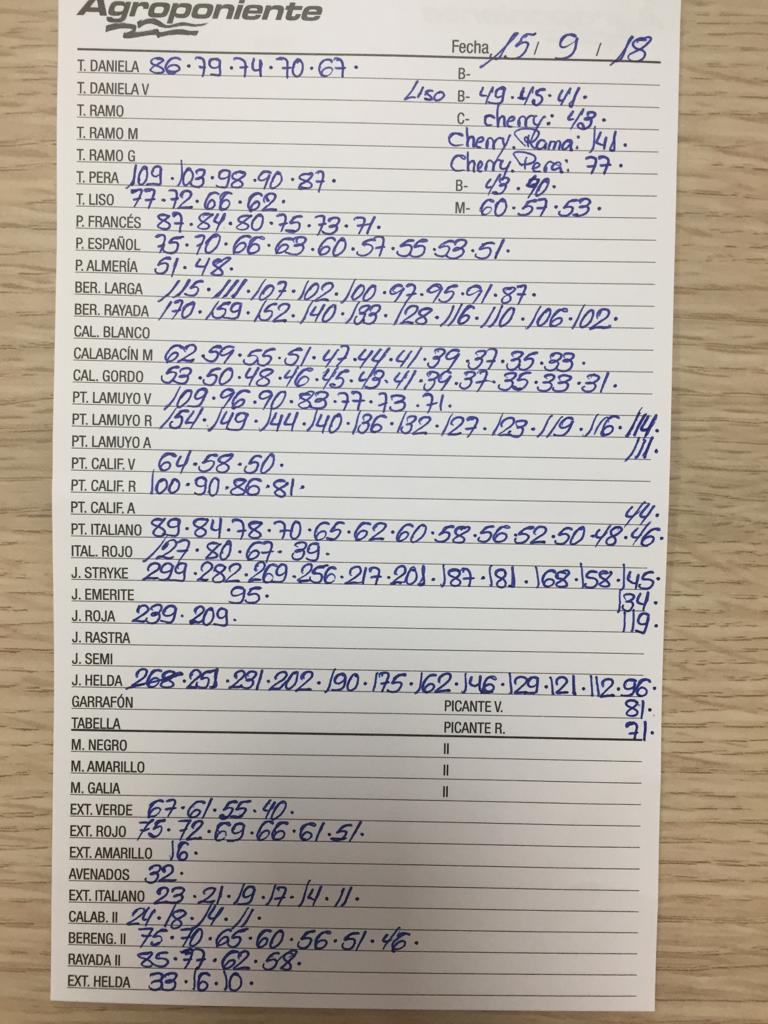 Agroponiente
Fecha 15/ 9 / 18
T. DANIELA 86·79·74·70·67· B-
T. DANIELA V Liso B- 49·45·41·
T. RAMO C- cherry: 43·
T. RAMO M Cherry Rama: 141·
T. RAMO G Cherry Pera: 77·
T. PERA 109·103·98·90·87· B- 43·40·
T. LISO 77·72·66·62· M- 60·57·53·
P. FRANCÉS 87·84·80·75·73·71·
P. ESPAÑOL 75·70·66·63·60·57·55·53·51·
P. ALMERÍA 51·48·
BER. LARGA 115·111·107·102·100·97·95·91·87·
BER. RAYADA 170·159·152·140·133·128·116·110·106·102·
CAL. BLANCO
CALABACÍN M 62·59·55·51·47·44·41·39·37·35·33·
CAL. GORDO 53·50·48·46·45·43·41·39·37·35·33·31·
PT. LAMUYO V 109·96·90·83·77·73·71·
PT. LAMUYO R 154·149·144·140·136·132·127·123·119·116·114·
PT. LAMUYO A 111·
PT. CALIF. V 64·58·50·
PT. CALIF. R 100·90·86·81·
PT. CALIF. A 44·
PT. ITALIANO 89·84·78·70·65·62·60·58·56·52·50·48·46·
ITAL. ROJO 127·80·67·39·
J. STRYKE 299·282·269·256·217·201·187·181·168·158·145·
J. EMERITE 95· 134·
J. ROJA 239·209· 119·
J. RASTRA
J. SEMI
J. HELDA 268·251·231·202·190·175·162·146·129·121·112·96·
GARRAFÓN PICANTE V. 81·
TABELLA PICANTE R. 71·
M. NEGRO II
M. AMARILLO II
M. GALIA II
EXT. VERDE 67·61·55·40·
EXT. ROJO 75·72·69·66·61·51·
EXT. AMARILLO 16·
AVENADOS 32·
EXT. ITALIANO 23·21·19·17·14·11·
CALAB. II 24·18·14·11·
BERENG. II 75·70·65·60·56·51·46·
RAYADA II 85·77·62·58·
EXT. HELDA 33·16·10·